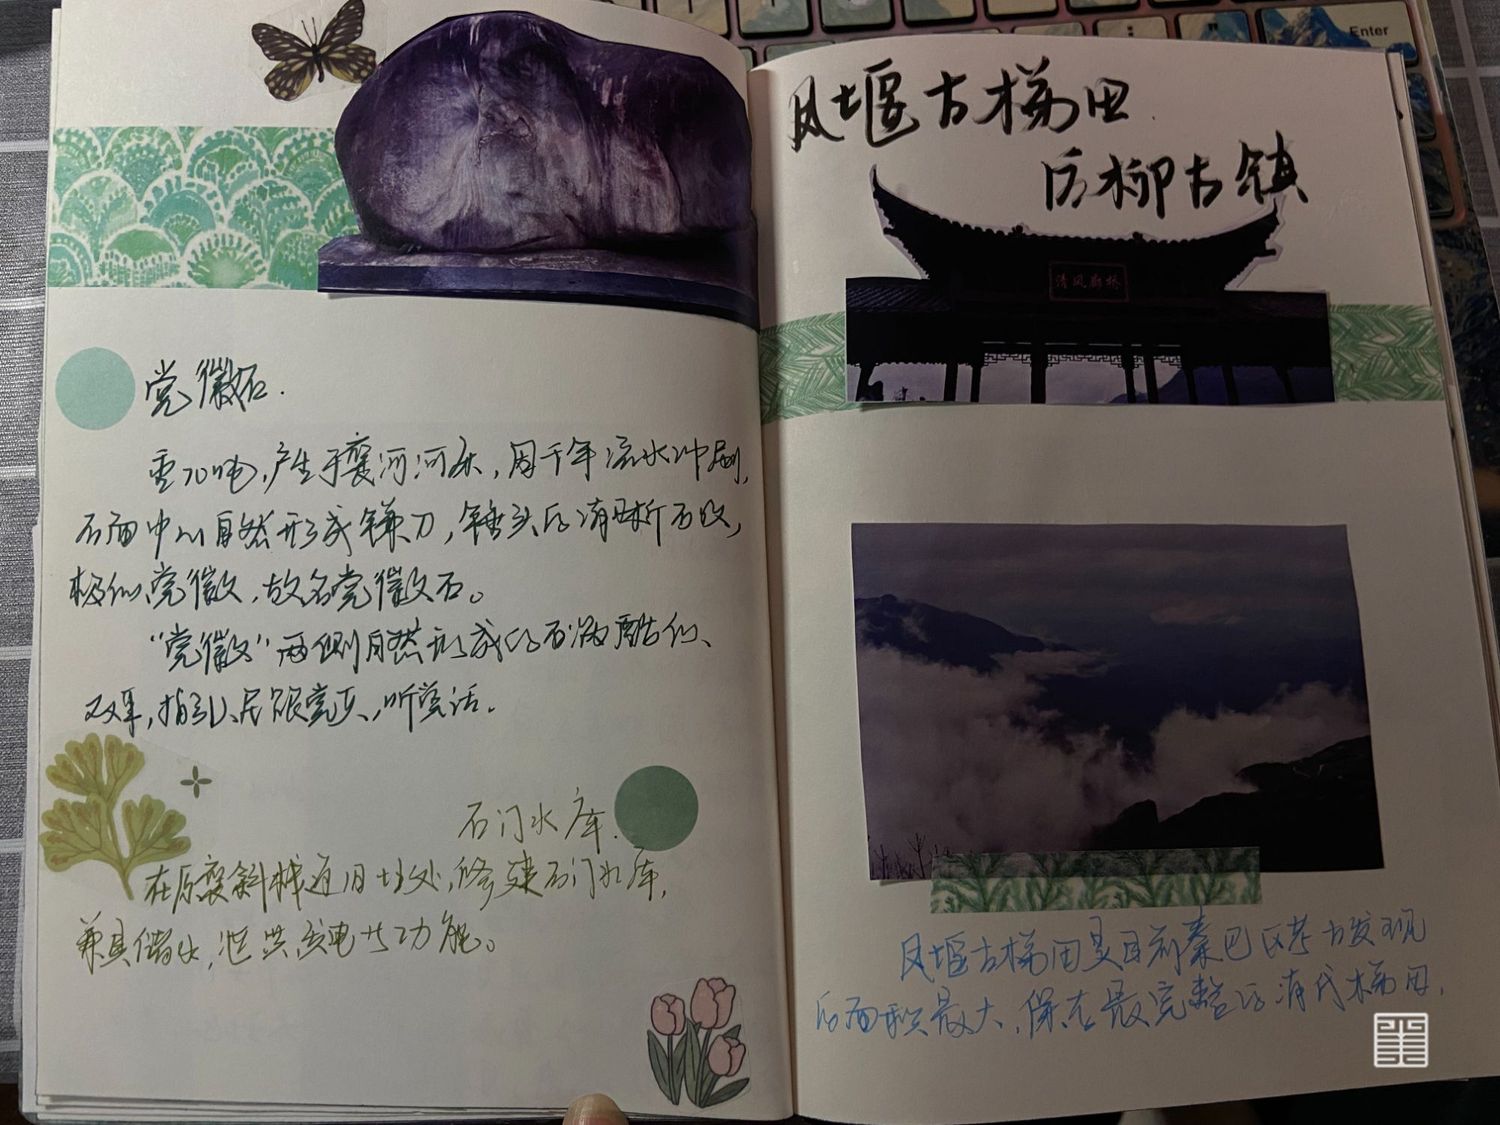 党徽石.
重70吨,产生于褒河河床,因千年流水冲刷,
石面中心自然形成镰刀,锤头的清晰石纹,
极似党徽,故名党徽石。
"党徽"两侧自然形成的石纹酷似
双耳,指引人民跟党走,听党话.
石门水库.
在原褒斜栈道旧址处,修建石门水库,
兼具储水,泄洪,发电等功能。
凤堰古梯田
后柳古镇
清风廊桥
凤堰古梯田是目前秦巴区考古发现
的面积最大,保存最完整的清代梯田.
Enter